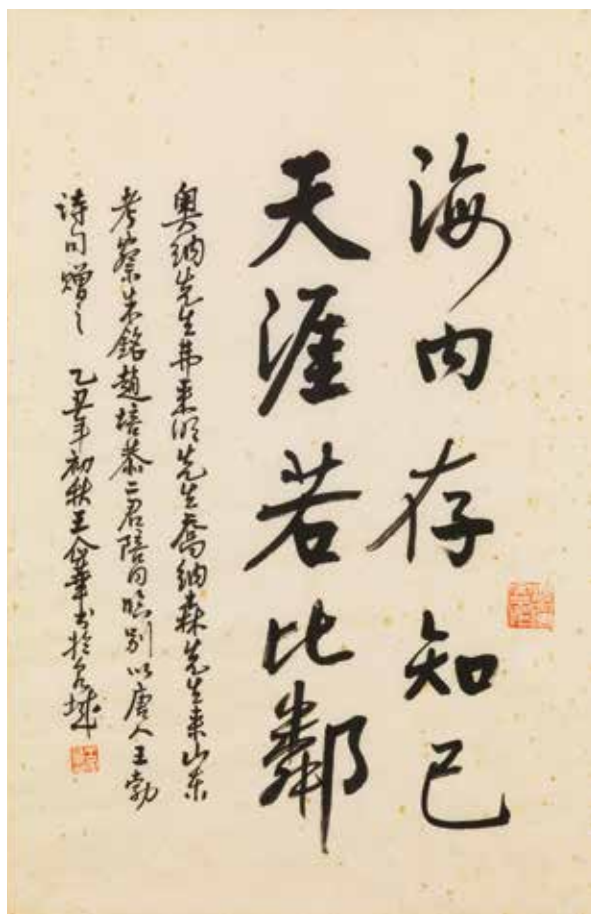 海内存知己
天涯若比鄰
奥纳先生弗来明先生喬纳森先生来山东
考察朱銘趙培恭二君陪同临别以唐人王勃
诗句赠之 乙丑年初秋王仲華书於泉城